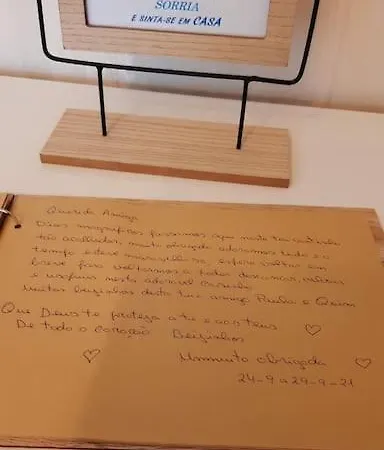 SORRIA
E SINTA-SE EM CASA
Querida Amiga
Dias magníficos passamos aqui neste teu cantinho
tão acolhedor, muito obrigada adoramos tudo e o
tempo esteve maravilhoso, espero voltar em
breve para voltarmos a
e usufruir nesta
muitos beijinhos desta tua amiga Paula e
Que Deus te proteja a ti e aos teus
De todo o coração Beijinhos
Muito obrigada
24-9 a 29-9-21